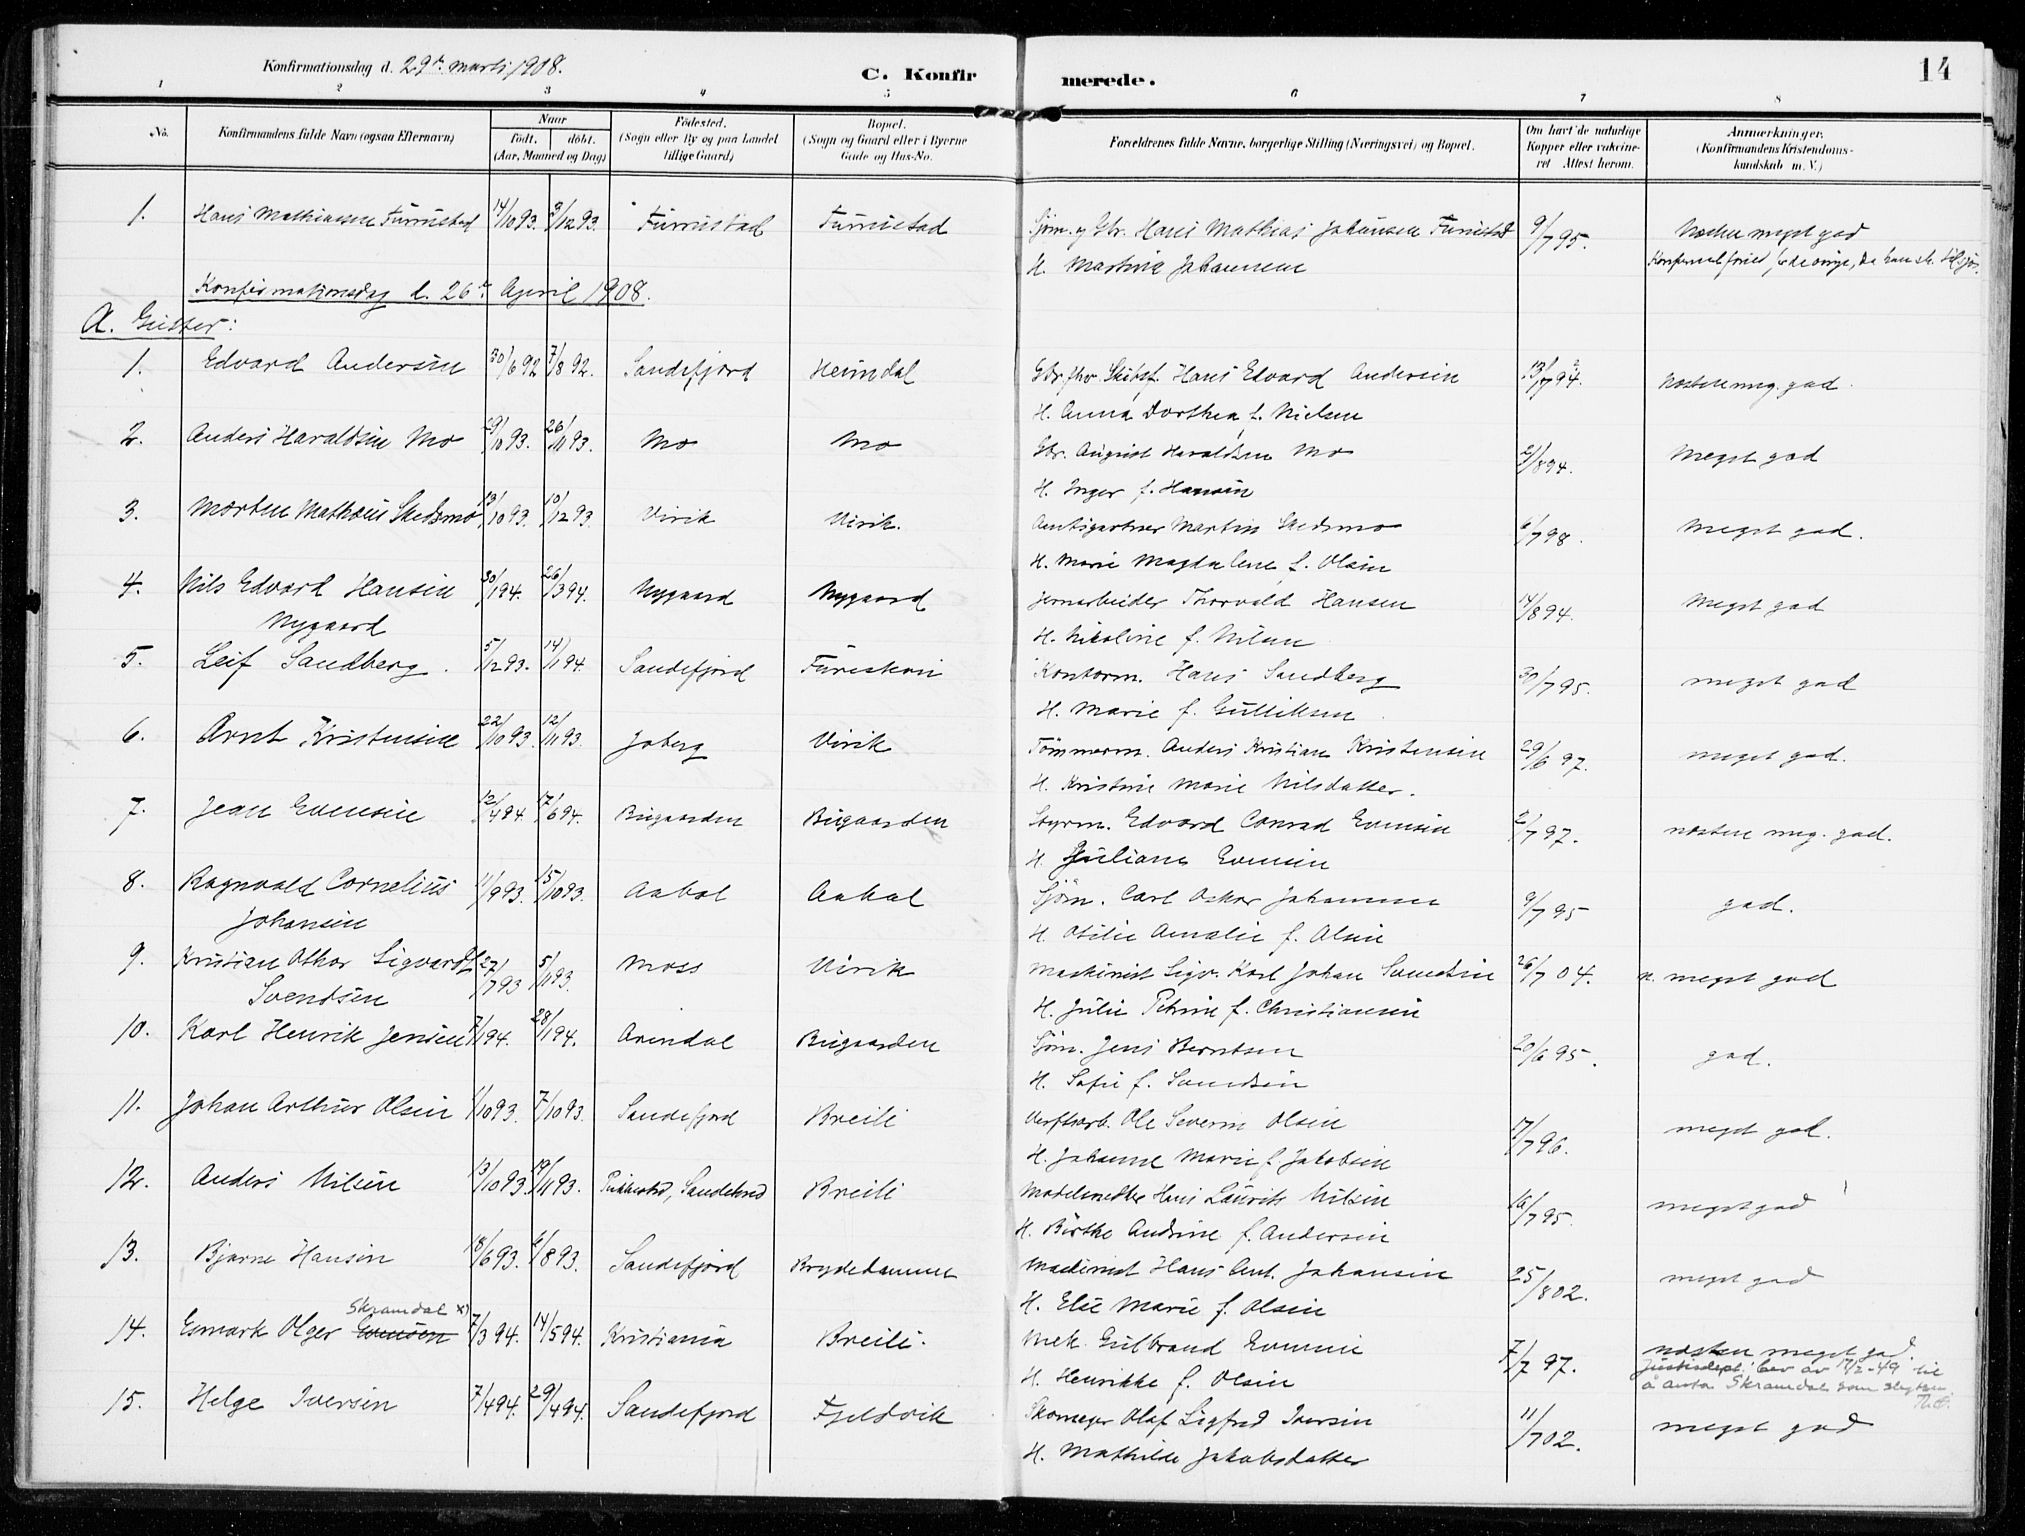 Konfirmationsdag d. 29de marts 1908.
C. Konfirmerede.
14
1 2 3 4 5 6 7 8
No.
Konfirmandens fulde Navn (ogsaa Efternavn)
Naar
født. døbt.
(Aar, Maaned og Dag)
Fødested.
(Sogn eller By og paa Landet
tillige Gaard)
Bopæl.
(Sogn og Gaard eller i Byerne
Gade og Hus-No.
Forældrenes fulde Navne, borgerlige Stilling (Næringsvei) og Bopæl.
Om havt de naturlige
Kopper eller vakcine-
ret Attest herom.
Anmærkninger.
(Konfirmandens Kristendoms-
kundskab m. V.)
1. Hans Mathiassen Furustad 14/10 93. 3/12 93. Furustad Furustad Sjøm. og Gbr. Hans Mathias Johansen Furustad 9/7 95. Næsten meget god
H. Martine Johannesen
Konfirmationsdag d. 26de April 1908.
A. Gutter:
1. Edvard Andersen 30/6 92 7/8 92. Sandefjord Heimdal Gbr. fhv. Skibsf. Hans Edvard Andersen 13/7 94. Næsten meg. god.
H. Anna Dorthea f. Nielsen
2. Anders Haraldsen Mo 29/10 93. 26/11 93. Mo Mo Gbr. August Haraldsen Mo 2/8 94. Meget god
H. Inger f. Hansen
3. Morten Mathæus Skedsmo 13/10 93. 10/12 93. Virik Virik. Amtsgartner Martin Skedsmo 6/7 98. Meget god.
H. Marie Magdalene f. Olsen
4. Nils Edvard Hansen 30/1 94. 26/3 94. Nygaard Nygaard Jernarbeider Thorvald Hansen 14/8 94. Meget god
Nygaard H. Nikoline f. Nilsen
5. Leif Sandberg. 5/12 93. 14/1 94. Sandefjord Fureskoven Kontorm. Hans Sandberg 30/7 95. meget god
H. Marie f. Gulliksen
6. Arnt Kristensen 22/10 93. 12/11 93. Joberg Virik Tømmerm. Anders Kristian Kristensen 29/6 97. meget god.
H. Kristine Marie Nilsdatter.
7. Jean Evensen 12/4 94. 17/6 94. Bugaarden Bugaarden Styrm. Edvard Conrad Evensen 2/7 97. næsten meg. god.
H. Juliane Evensen
8. Ragnvald Cornelius 11/9 93. 15/10 93. Aabol Aabol Sjøm. Carl Oskar Johannesen 9/7 95 god.
Johansen H. Otilie Amalie f. Olsen
9. Kristian Othar Sigvard 27/7 93 5/11 93. Moss Virik Maskinist Sigv. Karl Johan Svendsen 26/7 04. n. meget god
Svendsen H. Julie Petrine f. Christiansen
10. Karl Henrik Jensen 7/1 94. 28/1 94. Arendal Bugaarden Sjøm. Jens Berntsen 20/6 95. god.
H. Sofie f. Svendsen
11. Johan Arthur Olsen 1/10 93. 7/10 93. Sandefjord Breili Verftsarb. Ole Severin Olsen 17/7 96. meget god.
H. Johanne Marie f. Jakobsen
12. Anders Nilsen 13/10 93. 19/11 93. Sandeherred Breili Modelsnedker Hans Laurits Nilsen 16/7 95. meget god
H. Birthe Andrine f. Andersen
13. Bjarne Hansen 18/6 93. 6/8 93. Sandefjord Brydedammen Maskinist Hans Ant. Johansen 25/8 02. meget god
H. Elie Marie f. Olsen
Skramdal x)
14. Esmark Olger Evensen 7/3 94. 14/5 94. Kristiania Breili. Mek. Gulbrand Evensen 7/7 97. næsten meget god.
H. Henrikke f. Olsen Justisdept. bev av 17/2-49 til
å anta Skramdal som slegtsn.
15. Helge Iversen 7/4 94. 29/4 94. Sandefjord Fjeldvik Skomager Olaf Sigfred Iversen 11/7 02. meget god
H. Mathilde Jakobsdatter